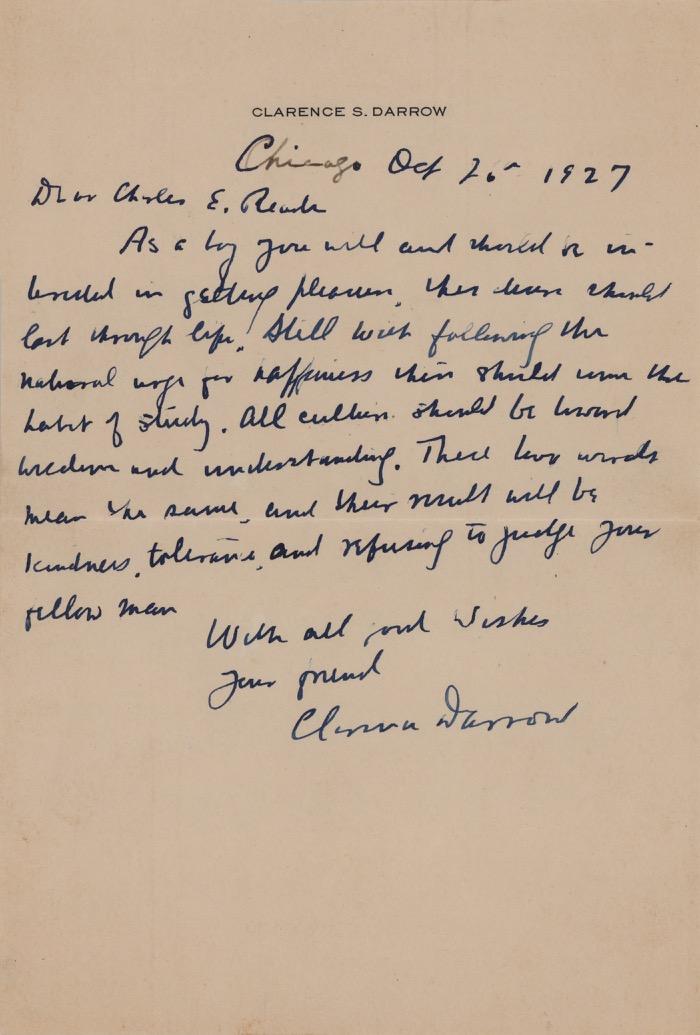 CLARENCE S. DARROW
Chicago Oct 1927
Dear Charles E.
As a boy you will and should be in-
terested in getting pleasure, this desire should
last through life. Still with following the
natural urge for happiness there should come the
habit of study. All culture should be toward
wisdom and understanding. These two words
mean the same, and their result will be
kindness, tolerance, and refusing to judge your
fellow man
With all good wishes
Your friend
Clarence Darrow